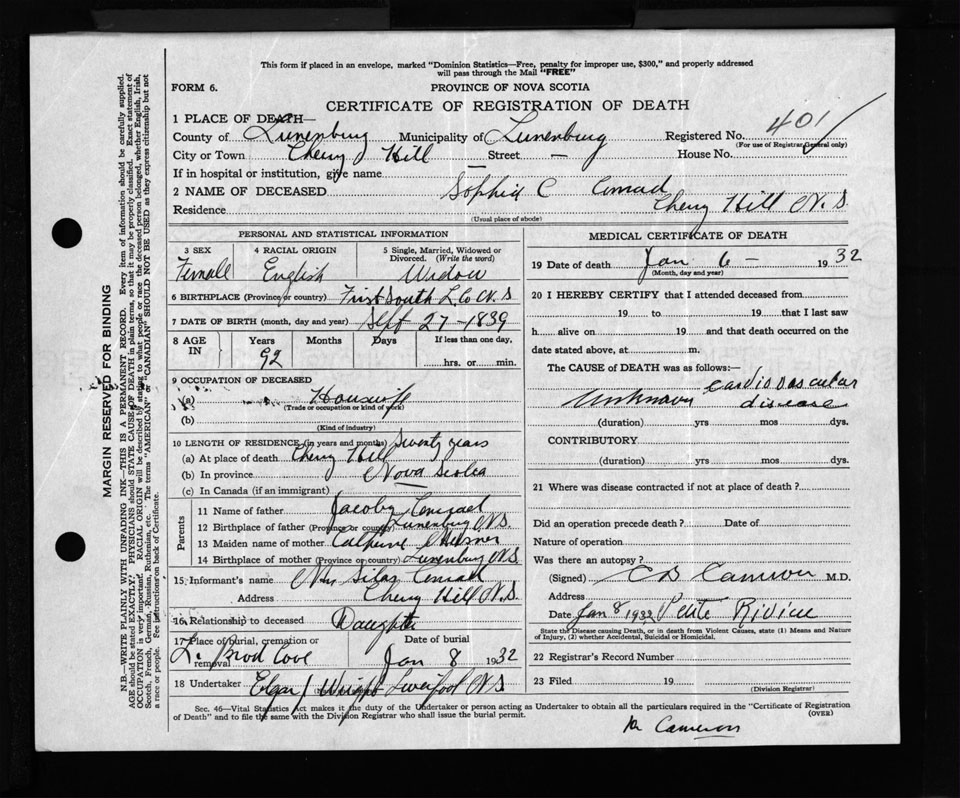 This form if placed in an envelope, marked "Dominion Statistics—Free, penalty for improper use, $300," and properly addressed
will pass through the Mail "FREE"
FORM 6.
PROVINCE OF NOVA SCOTIA
CERTIFICATE OF REGISTRATION OF DEATH
1 PLACE OF DEATH—
County of Lunenburg Municipality of Lunenburg Registered No. 401
(For use of Registrar General only)
City or Town Cherry Hill Street — House No.
If in hospital or institution, give name —
2 NAME OF DECEASED Sophia C Conrad
Residence Cherry Hill N.S.
(Usual place of abode)
PERSONAL AND STATISTICAL INFORMATION
3 SEX 4 RACIAL ORIGIN 5 Single, Married, Widowed or
Divorced. (Write the word)
Femell English Widow
6 BIRTHPLACE (Province or country) First South L. Co N.S
7 DATE OF BIRTH (month, day and year) Sept 27-1839
8 AGE IN Years Months Days If less than one day,
92 hrs. or min.
9 OCCUPATION OF DECEASED
(a) Housewife
(Trade or occupation or kind of work)
(b)
(Kind of industry)
10 LENGTH OF RESIDENCE (in years and months) Seventy years
(a) At place of death Cherry Hill
(b) In province Nova Scotia
(c) In Canada (if an immigrant)
Parents
11 Name of father Jacob Conrad
12 Birthplace of father (Province or country) Lunenburg N.S.
13 Maiden name of mother
14 Birthplace of mother (Province or country) Lunenburg N.S
15 Informant's name Mrs Silas Conrad
Address Cherry Hill N.S.
16 Relationship to deceased Daughter
17 Place of burial, cremation or Date of burial
removal L. Brod Cove Jan 8 1932
18 Undertaker Liverpool N.S
MEDICAL CERTIFICATE OF DEATH
19 Date of death Jan 6 — 1932
(Month, day and year)
20 I HEREBY CERTIFY that I attended deceased from
19 to 19 that I last saw
h alive on 19 and that death occurred on
date stated above, at m.
The CAUSE of DEATH was as follows:—
Unknown Cardiovascular
disease
(duration) yrs mos dys.
CONTRIBUTORY
(duration) yrs mos dys.
21 Where was disease contracted if not at place of death?
Did an operation precede death? Date of
Nature of operation
Was there an autopsy?
(Signed) C D Cameron M.D.
Address
Date Jan 8 1932 Petite Riviere
State the Disease causing Death, or in death from Violent Causes, state (1) Means and Nature
of Injury, (2) whether Accidental, Suicidal or Homicidal.
22 Registrar's Record Number
23 Filed 19
(Division Registrar)
Sec. 46—Vital Statistics Act makes it the duty of the Undertaker or person acting as Undertaker to obtain all the particulars required in the "Certificate of Registration
of Death" and to file the same with the Division Registrar who shall issue the burial permit. (OVER)
Dr Cameron
MARGIN RESERVED FOR BINDING
N.B.—WRITE PLAINLY WITH UNFADING INK—THIS IS A PERMANENT RECORD. Every item of information should be carefully supplied.
AGE should be stated EXACTLY. PHYSICIANS should STATE CAUSE OF DEATH in plain terms, so that it may be properly classified. Exact statement of
OCCUPATION is very important. RACIAL ORIGIN will be described by stating to what people or race the deceased person belonged, whether English, Irish,
Scotch, French, German, Russian, Ruthenian, etc. The terms "AMERICAN" or "CANADIAN" SHOULD NOT BE USED as they express citizenship but not
a race or people. See instructions on back of Certificate.